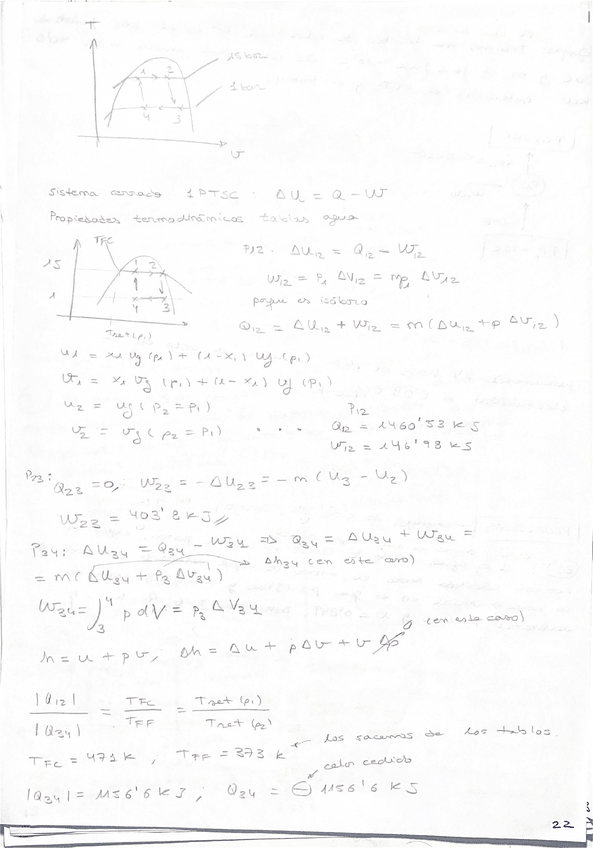 T
15 bar
1 bar
1 2
4 3
v
Sistema cerrado 1PTSC: ΔU = Q - W
Propiedades termodinámicas tablas agua
TFC
15
1
1 2
4 3
Tsat(p₁)
P12. ΔU₁₂ = Q₁₂ - W₁₂
W₁₂ = P₁ ΔV₁₂ = mp₁ ΔV₁₂
porque es isóbara
Q₁₂ = ΔU₁₂ + W₁₂ = m(ΔU₁₂ + p ΔV₁₂)
u₁ = x₁ ug (p₁) + (1-x₁) uf (p₁)
v₁ = x₁ vg (p₁) + (1-x₁) vf (p₁)
u₂ = ug (p₂ = p₁)
v₂ = vg (p₂ = p₁) . . .
P12
Q₁₂ = 1460'53 KJ
W₁₂ = 146'98 KJ
P23: Q₂₃ = 0; W₂₃ = -ΔU₂₃ = -m (U₃ - U₂)
W₂₃ = 403'8 KJ //
P34: ΔU₃₄ = Q₃₄ - W₃₄ ⇒ Q₃₄ = ΔU₃₄ + W₃₄ =
= m(ΔU₃₄ + P₃ ΔV₃₄) → Δh₃₄ (en este caso)
W₃₄ = ∫₃⁴ p dV = p₃ ΔV₃₄
h = u + pv, Δh = Δu + pΔv + vΔp 0 (en este caso)
|Q₁₂| / |Q₃₄| = TFC / TFF = Tsat (p₁) / Tsat (p₂)
TFC = 471 K, TFF = 373 K ← los sacamos de las tablas.
calor cedido
|Q₃₄| = 1156'6 KJ ; Q₃₄ = - 1156'6 KJ
22